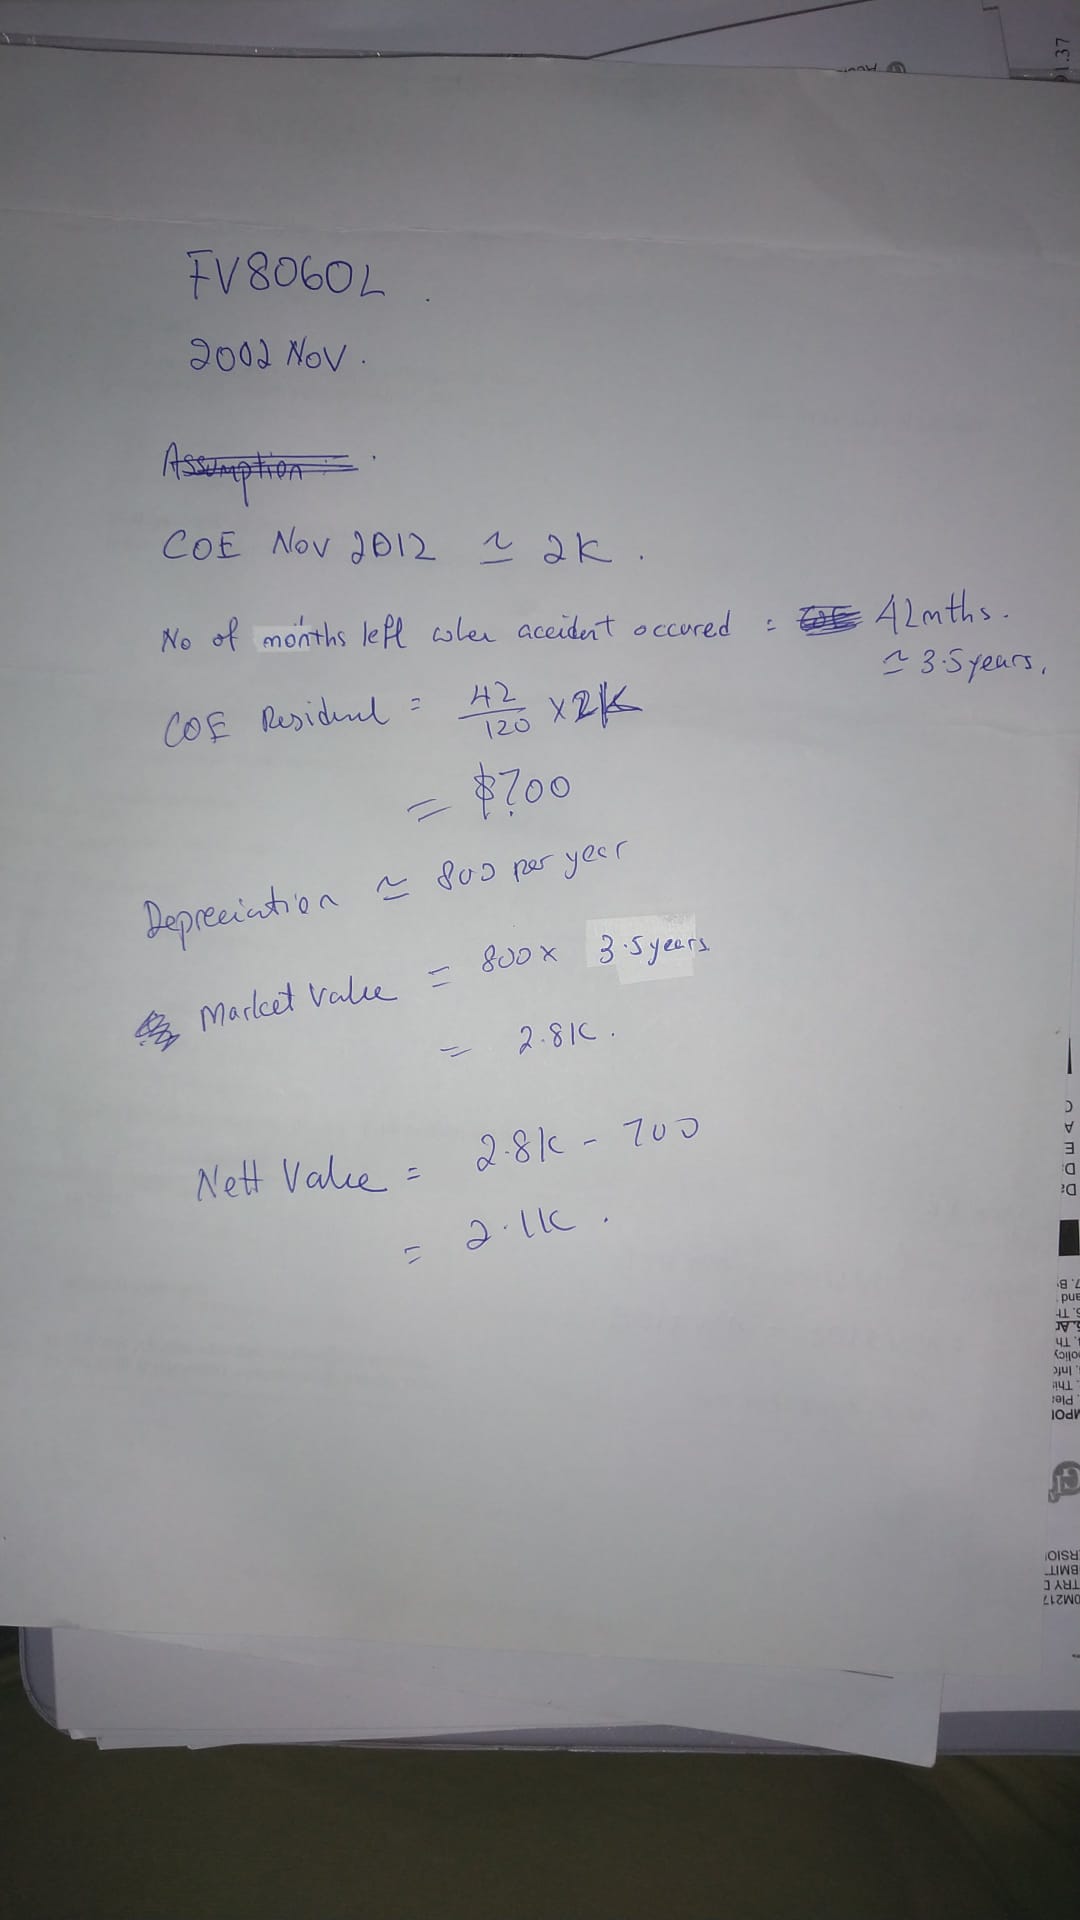 FV8060L.
2002 Nov.
Assumption
COE Nov 2012 ≃ 2K.
No of months left when accident occured = 42mths.
≃ 3.5 years.
COE Residual = 42/120 x 2K
= $700
Depreciation ≃ 800 per year
Market Value = 800 x 3.5 years
= 2.8K.
Nett Value = 2.8K - 700
= 2.1K.